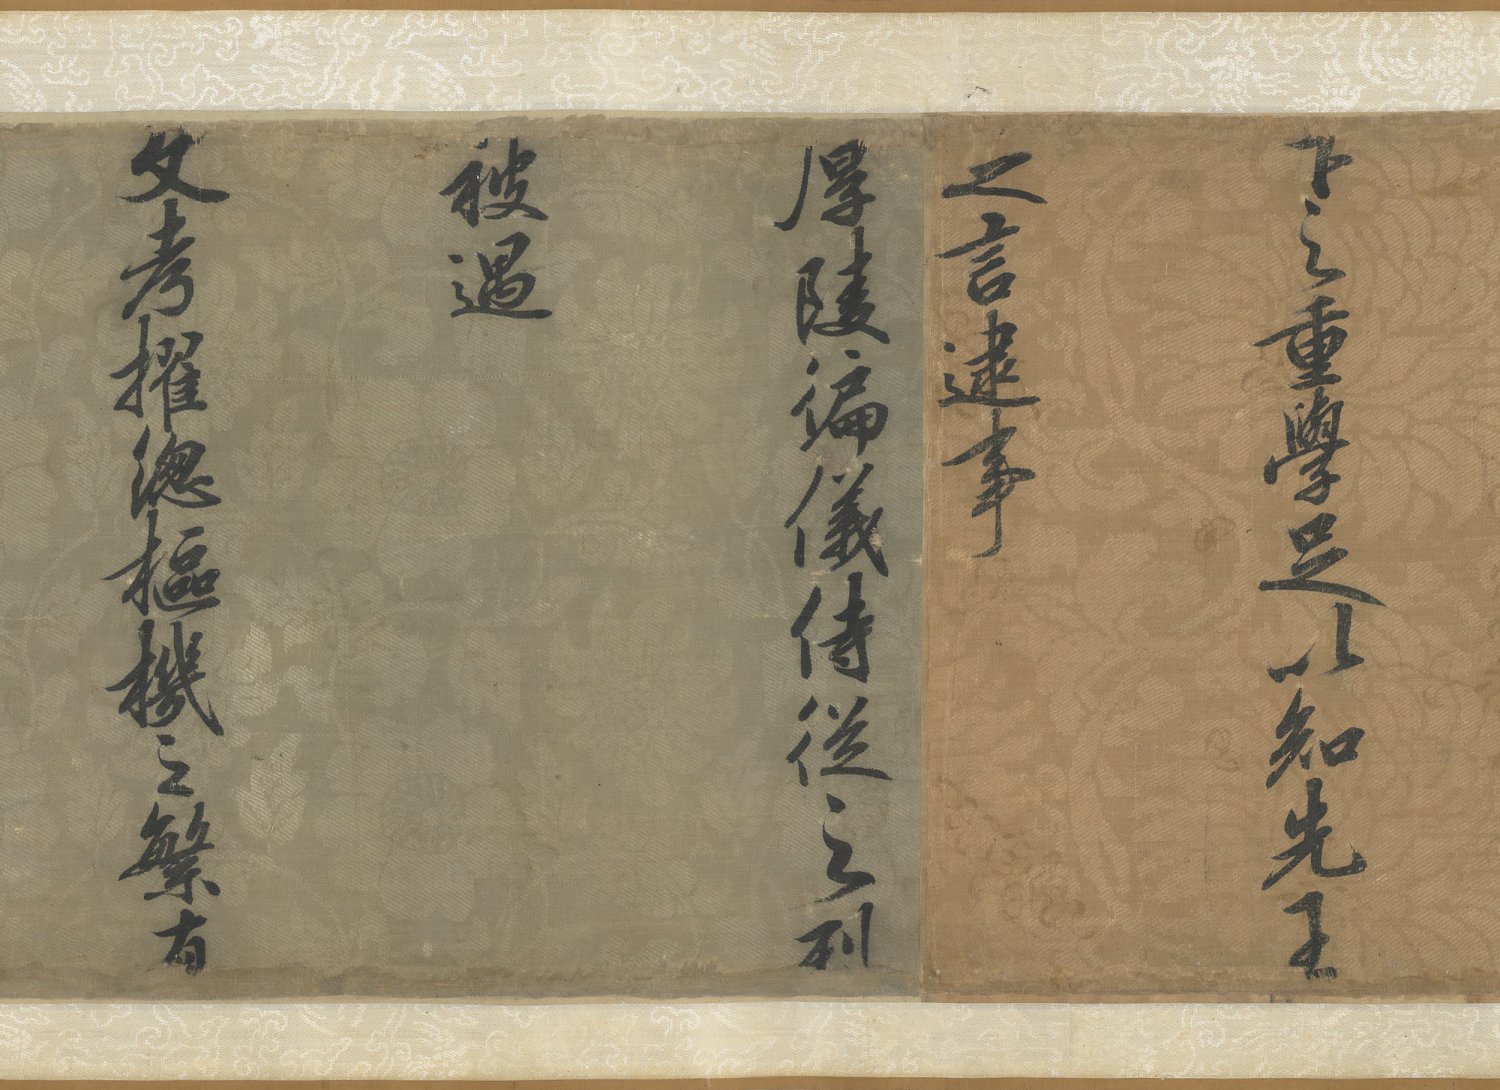 下之重學足以知先王
之言逮事
厚陵徧儀侍從之列
被遇
文考擢總樞機之繁有